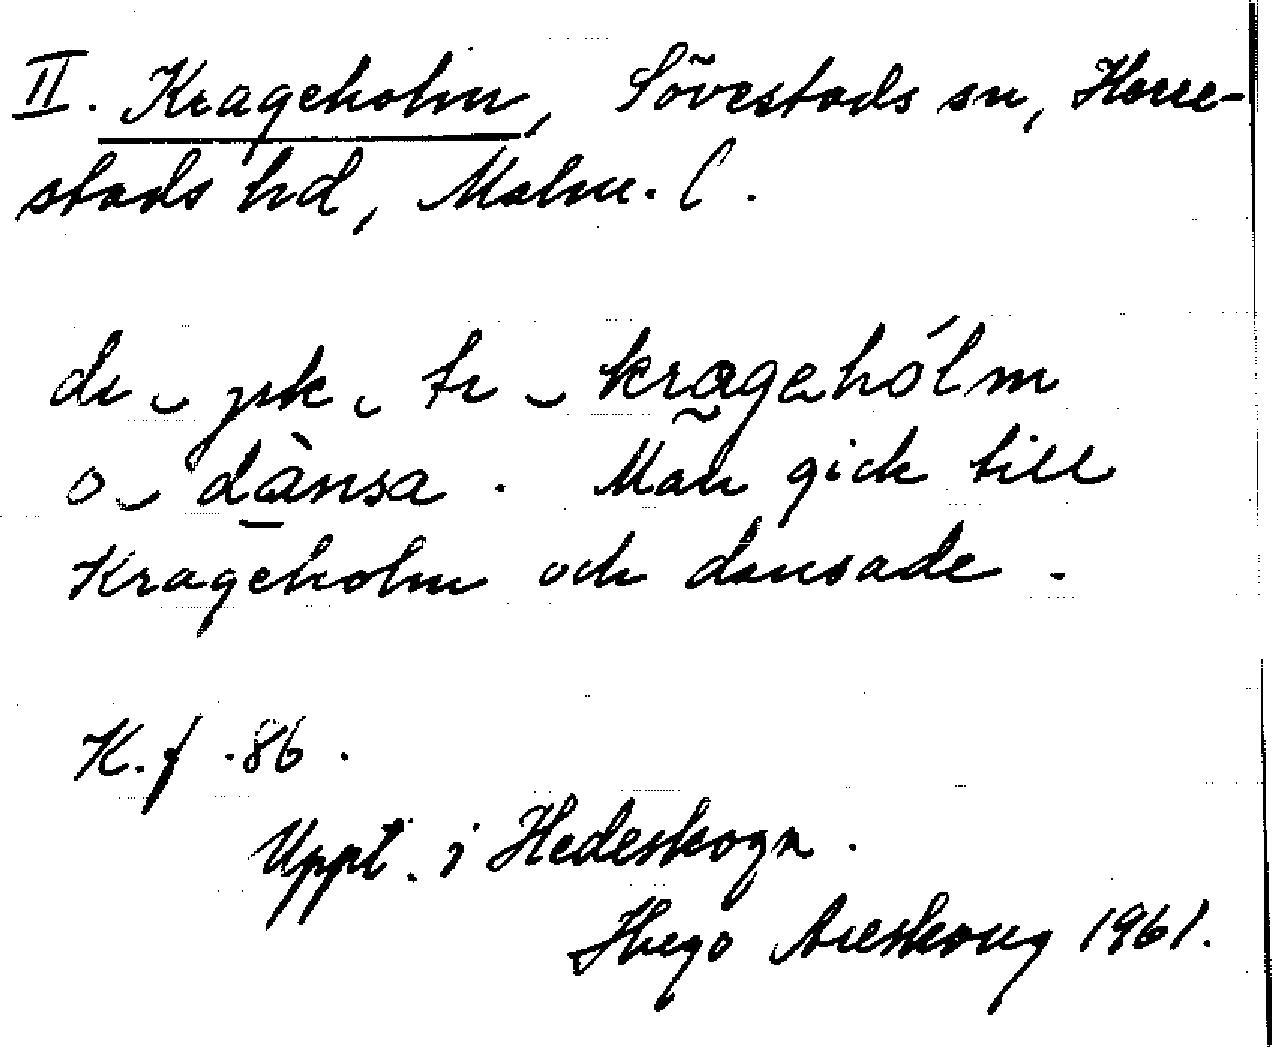 II. Krageholm, Sövestads sn, Herre-
stads hd, Malm. l.
kragehólm
o dànsa. Man gick till
Krageholm och dansade.
K. f. 86.
Uppt. i Hedeskoga.
Hugo Areskoug 1961.